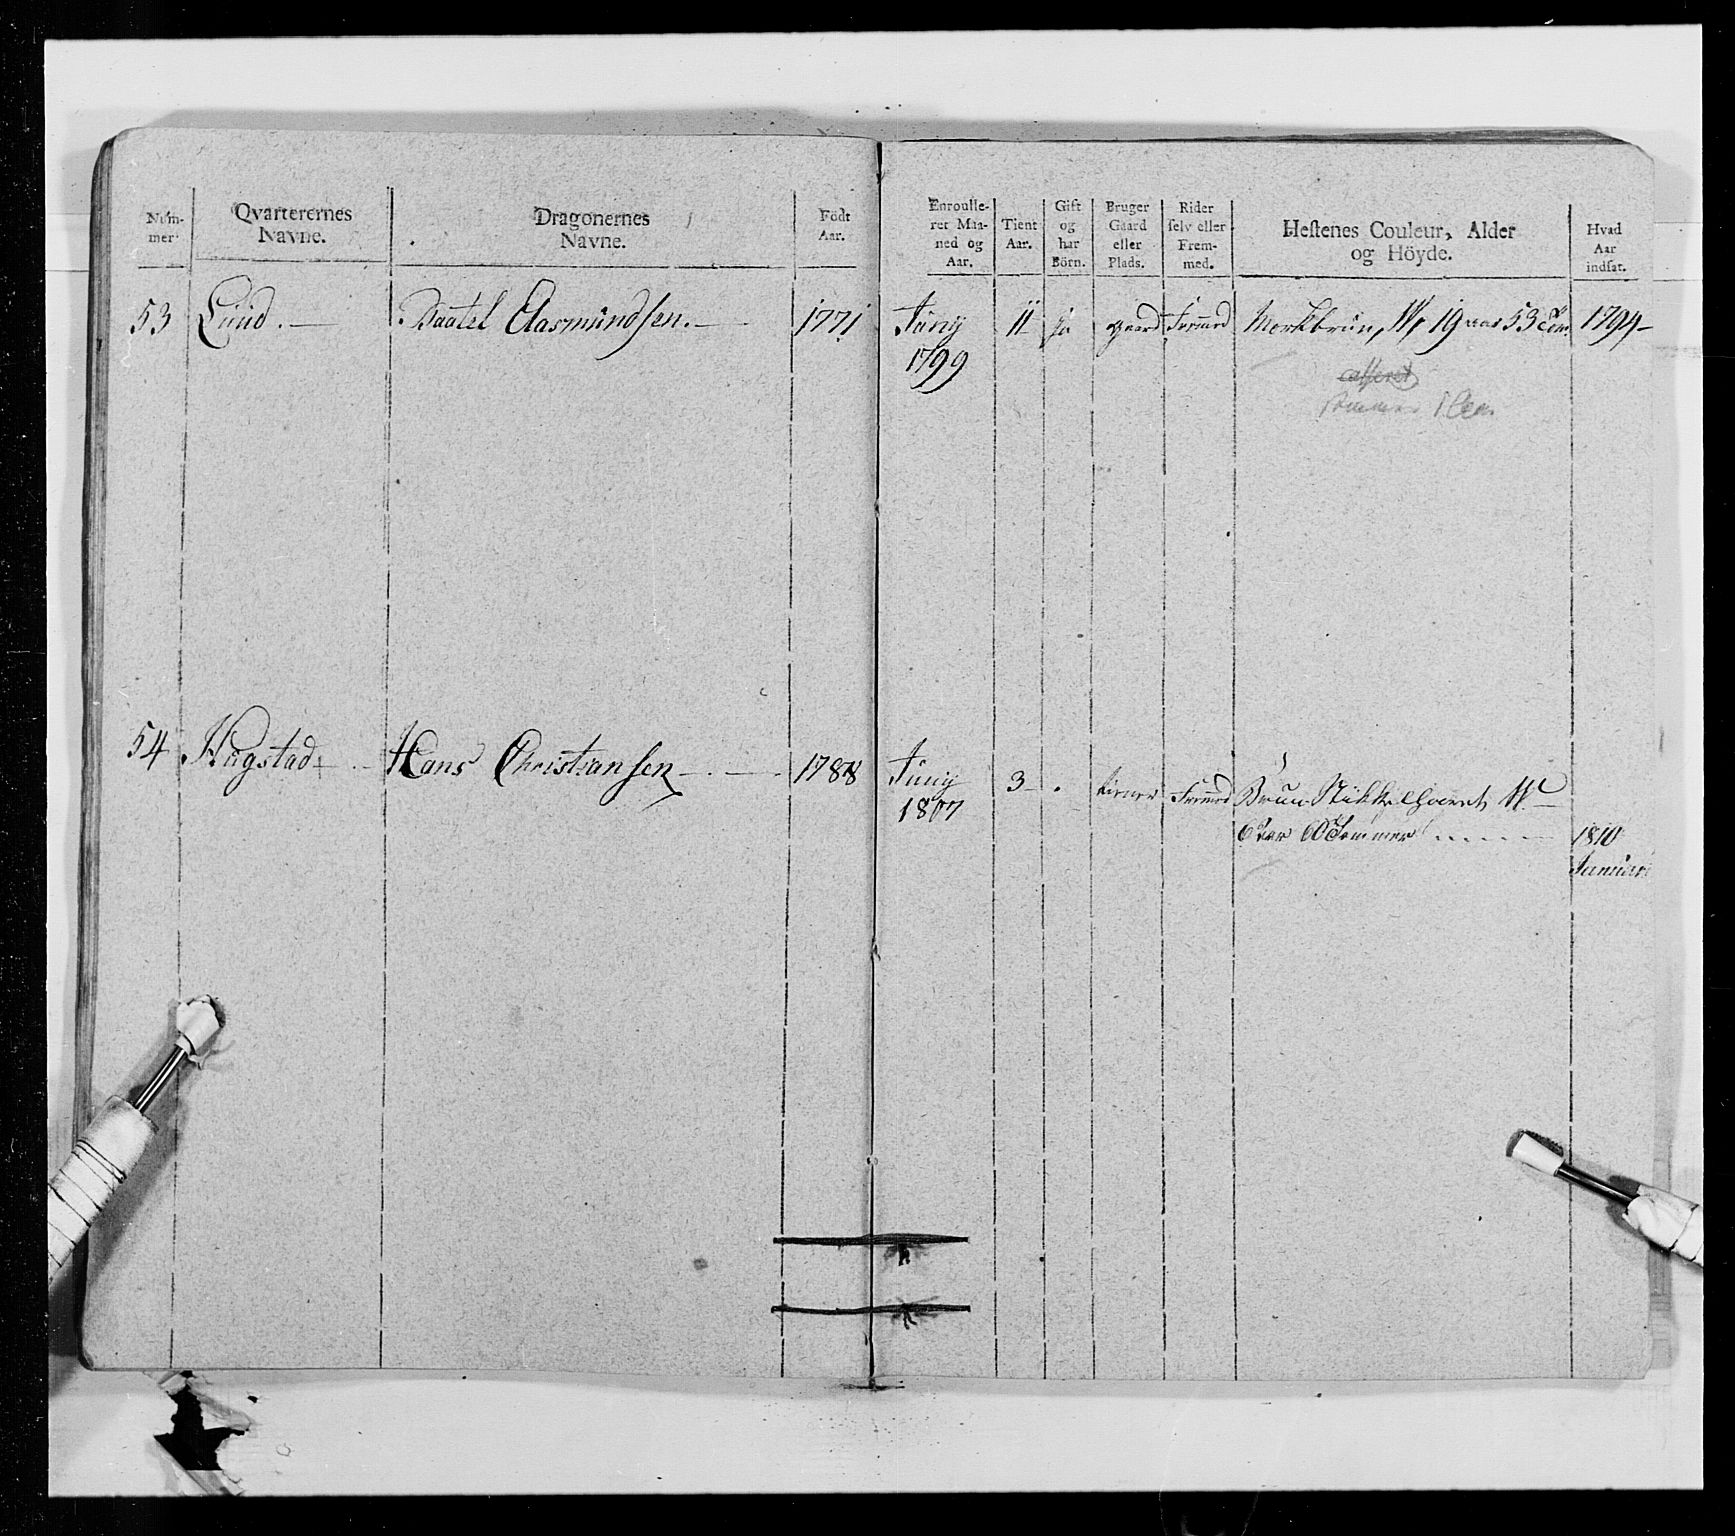 Num-
mer.
Qvarterernes
Navne.
Dragonernes
Navne.
Födt
Aar.
Enroulle-
ret Maa-
ned og
Aar.
Tient
Aar.
Gift
og
har
Börn.
Bruger
Gaard
eller
Plads.
Rider
selv eller
Frem-
med.
Hestenes Couleur, Alder
og Höyde.
Hvad
Aar
indsat.
53 Lund. Aasmundsen. 1771 Juny 11 ja gaard Fremed Morkbrun, W, 19 aar 53 Tom 1794
1799
casseret
54 Hugstad Hans Christiansen 1788 Juny 3 tiener Fremed Brun W
1807
6 aar 60 Tommer 1810
Januari